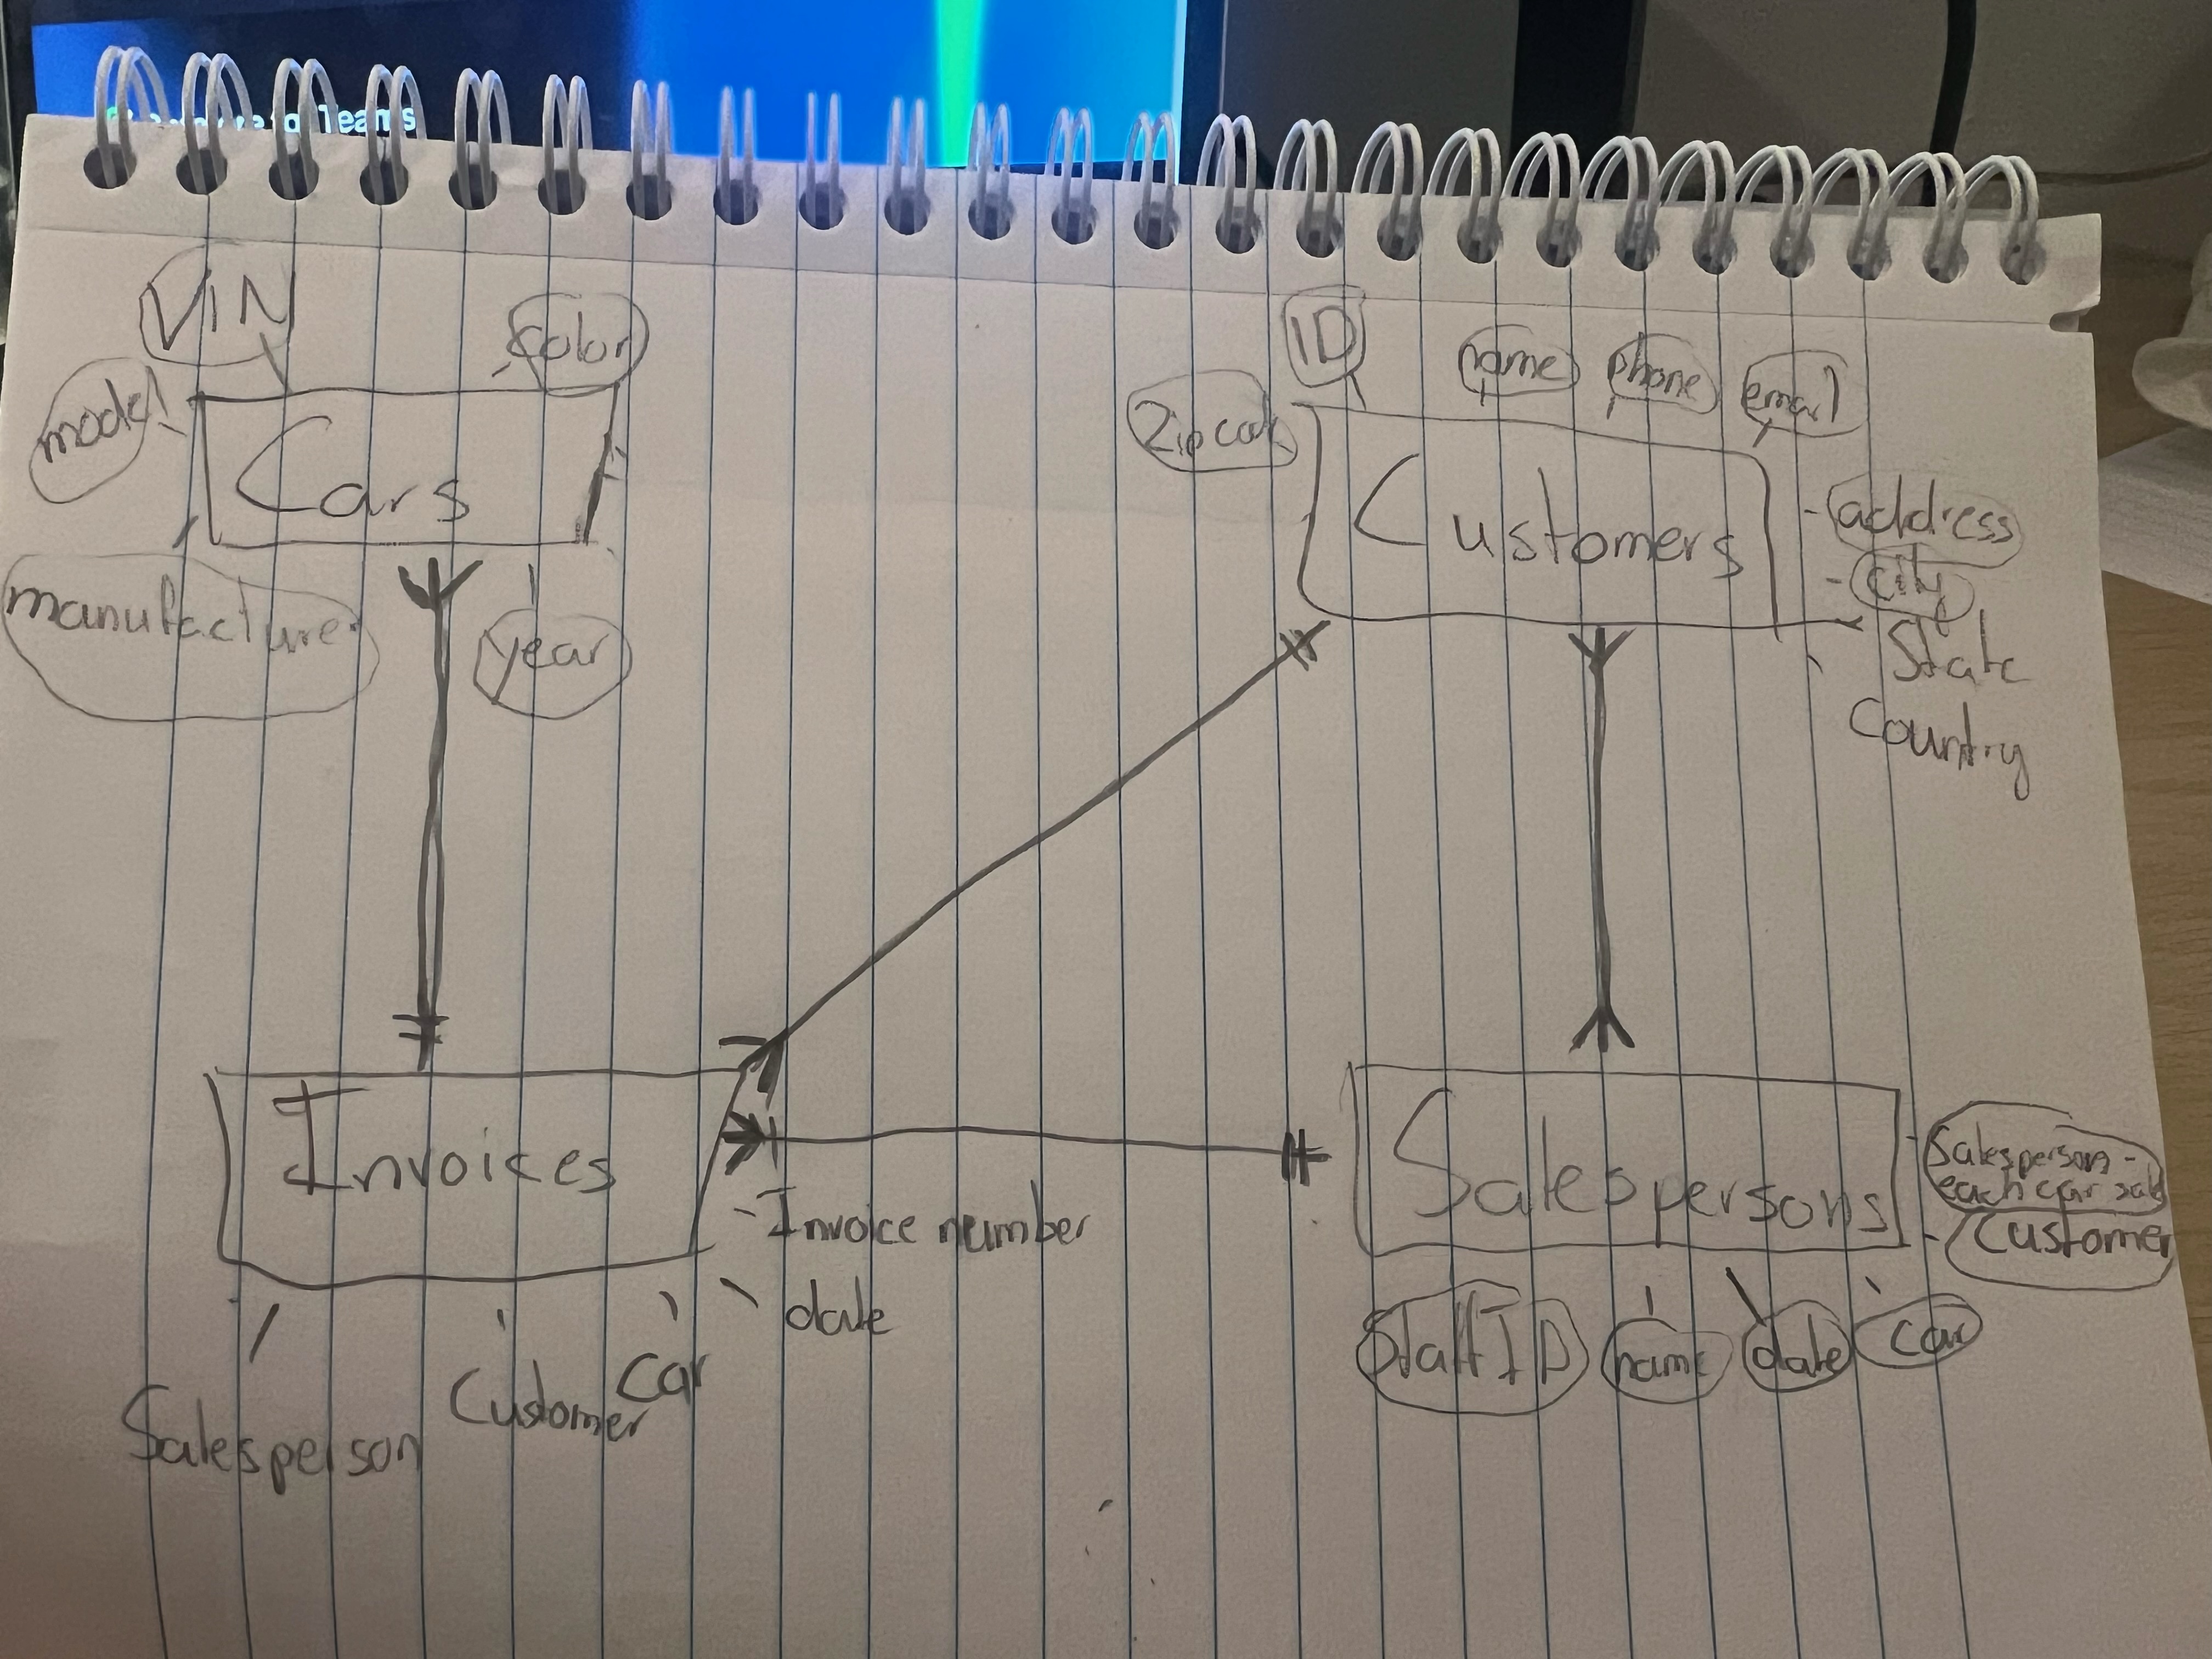 Teams
VIN
color
model
Cars
manufacturer
year
ID
name
phone
email
Zip code
Customers
address
city
State
Country
Invoices
Invoice number
date
Car
Customer
Salesperson
Salespersons
Salesperson -
each car sale
Customer
Staff ID
name
date
car